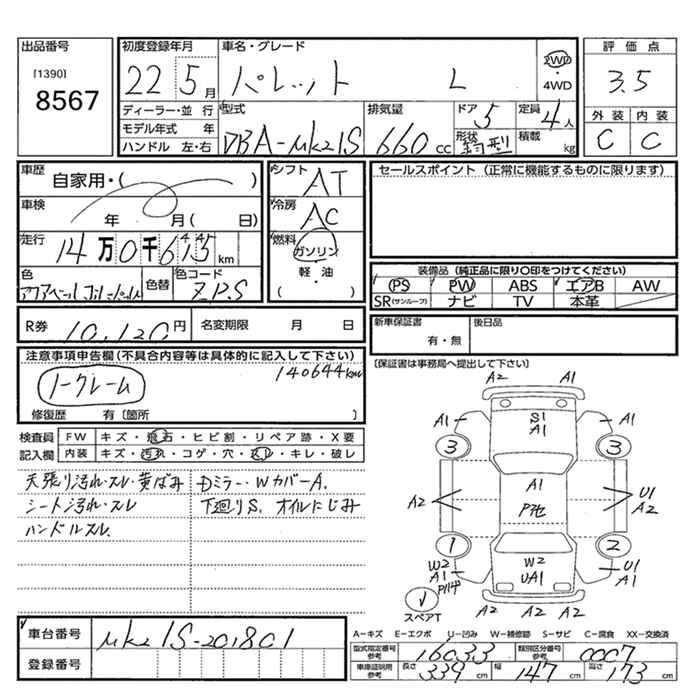 出品番号
[1390]
8567
初度登録年月
22 5月
車名・グレード
パレット L
2WD
・
4WD
評価点
3.5
外装 内装
C C
ディーラー・並行
モデル年式 年
ハンドル 左・右
型式
DBA-MK21S
排気量
660 cc
ドア
5
形状
箱型
定員
4人
積載
kg
車歴
自家用・( )
車検
年 月( 日)
走行
14万0千6 km
色
色替
色コード
ZPS
シフト
AT
冷房
AC
燃料
ガソリン
・
軽・油
( )
セールスポイント (正常に機能するものに限ります)
装備品 (純正品に限り○印をつけてください)
PS PW ABS エアB AW
SR(サンルーフ) ナビ TV 本革
R券 10,120円 名変期限 月 日
新車保証書
有・無
後日品
(保証書は事務局へ提出して下さい)
注意事項申告欄(不具合内容等は具体的に記入して下さい)
140644km
ノークレーム
修復歴 有〔箇所 〕
検査員
記入欄
FW キズ・飛石・ヒビ割・リペア跡・X要
内装 キズ・汚れ・コゲ・穴・スレ・キレ・破レ
天張り汚れ・スレ・黄ばみ
シート汚れ・スレ
ハンドルスレ
Dミラー・WカバーA.
下廻りS. オイルにじみ
A2 A1
A1 S1 A1 A1
3 3
A1
A2 U1 A2
P地
1 2
W2 A1 W2 UA1 U1 A1
スペアT
A2 A2 A2
A-キズ E-エクボ U-凹み W-補修跡 S-サビ C-腐食 XX-交換済
車台番号 MK21S-201801
登録番号
型式指定番号 参考 16033 類別区分番号 参考 0007
車庫証明用 参考 長さ 339 cm 幅 147 cm 高さ 173 cm